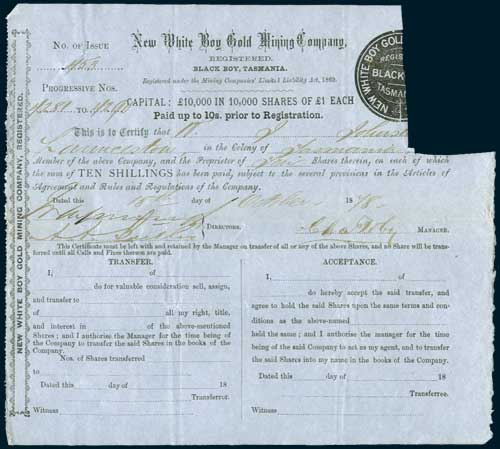 No. of Issue
New White Boy Gold Mining Company,
REGISTERED.
BLACK BOY, TASMANIA.
Registered under the Mining Companies' Limited Liability Act, 1869.
Progressive Nos.
TO
CAPITAL: £10,000 IN 10,000 SHARES OF £1 EACH
Paid up to 10s. prior to Registration.
NEW WHITE BOY GOLD
REGIS
BLACK
TASMAN
This is to Certify that W. J. Johns
Launceston in the Colony of Tasmania
Member of the above Company, and the Proprietor of Shares therein, on each of which
the sum of TEN SHILLINGS has been paid, subject to the several provisions in the Articles of
Agreement and Rules and Regulations of the Company.
Dated this 18th day of October 18
DIRECTORS.
MANAGER.
This Certificate must be left with and retained by the Manager on transfer of all or any of the above Shares, and no Share will be trans-
ferred until all Calls and Fines thereon are paid.
NEW WHITE BOY GOLD MINING COMPANY, REGISTERED.
TRANSFER.
I, of
do for valuable consideration sell, assign,
and transfer to
of all my right, title,
and interest in of the above-mentioned
Shares; and I authorise the Manager for the time being of
the Company to transfer the said Shares in the books of the
Company.
No. of Shares transferred
to
Dated this day of 18
Transferror.
Witness
ACCEPTANCE.
I, of
do hereby accept the said transfer, and
agree to hold the said Shares upon the same terms and con-
ditions as the above-named
held the same; and I authorise the manager for the time
being of the said Company to act as my agent, and to transfer
the said Shares into my name in the books of the Company.
Dated this day of 18
Transferree.
Witness